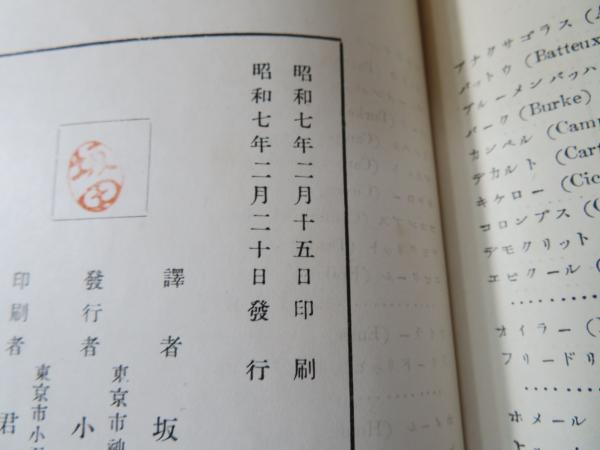 アナクサゴラス (A
バットウ (Batteux
ブルーメンバッハ
バーク (Burke)
カンペル (Camp
デカルト (Cart
キケロー (Cic
コロンブス (C
デモクリット
エピクール (
オイラー (
フリードリ
ホメール
昭和七年二月十五日印刷
昭和七年二月二十日發行
譯者 坂
發行者 東京市神 小
印刷者 東京市小 君
坂田